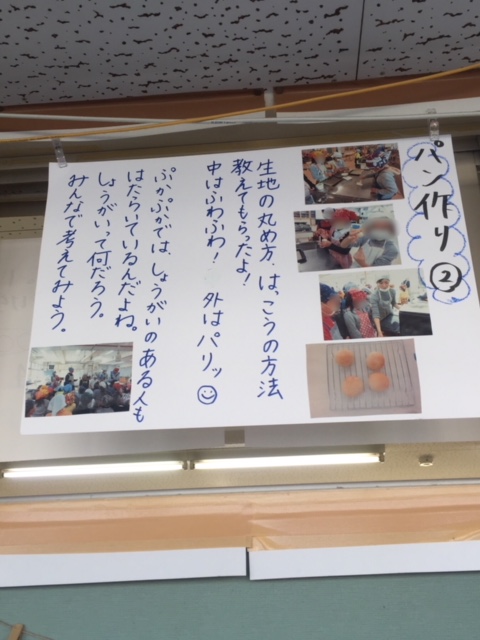 パン作り②
生地の丸め方、は、こうの方法
教えてもらったよ!
中はふわふわ! 外はパリッ
ぷかぷかでは、しょうがいのある人も
はたらいているんだよね。
しょうがいって何だろう。
みんなで考えてみよう。